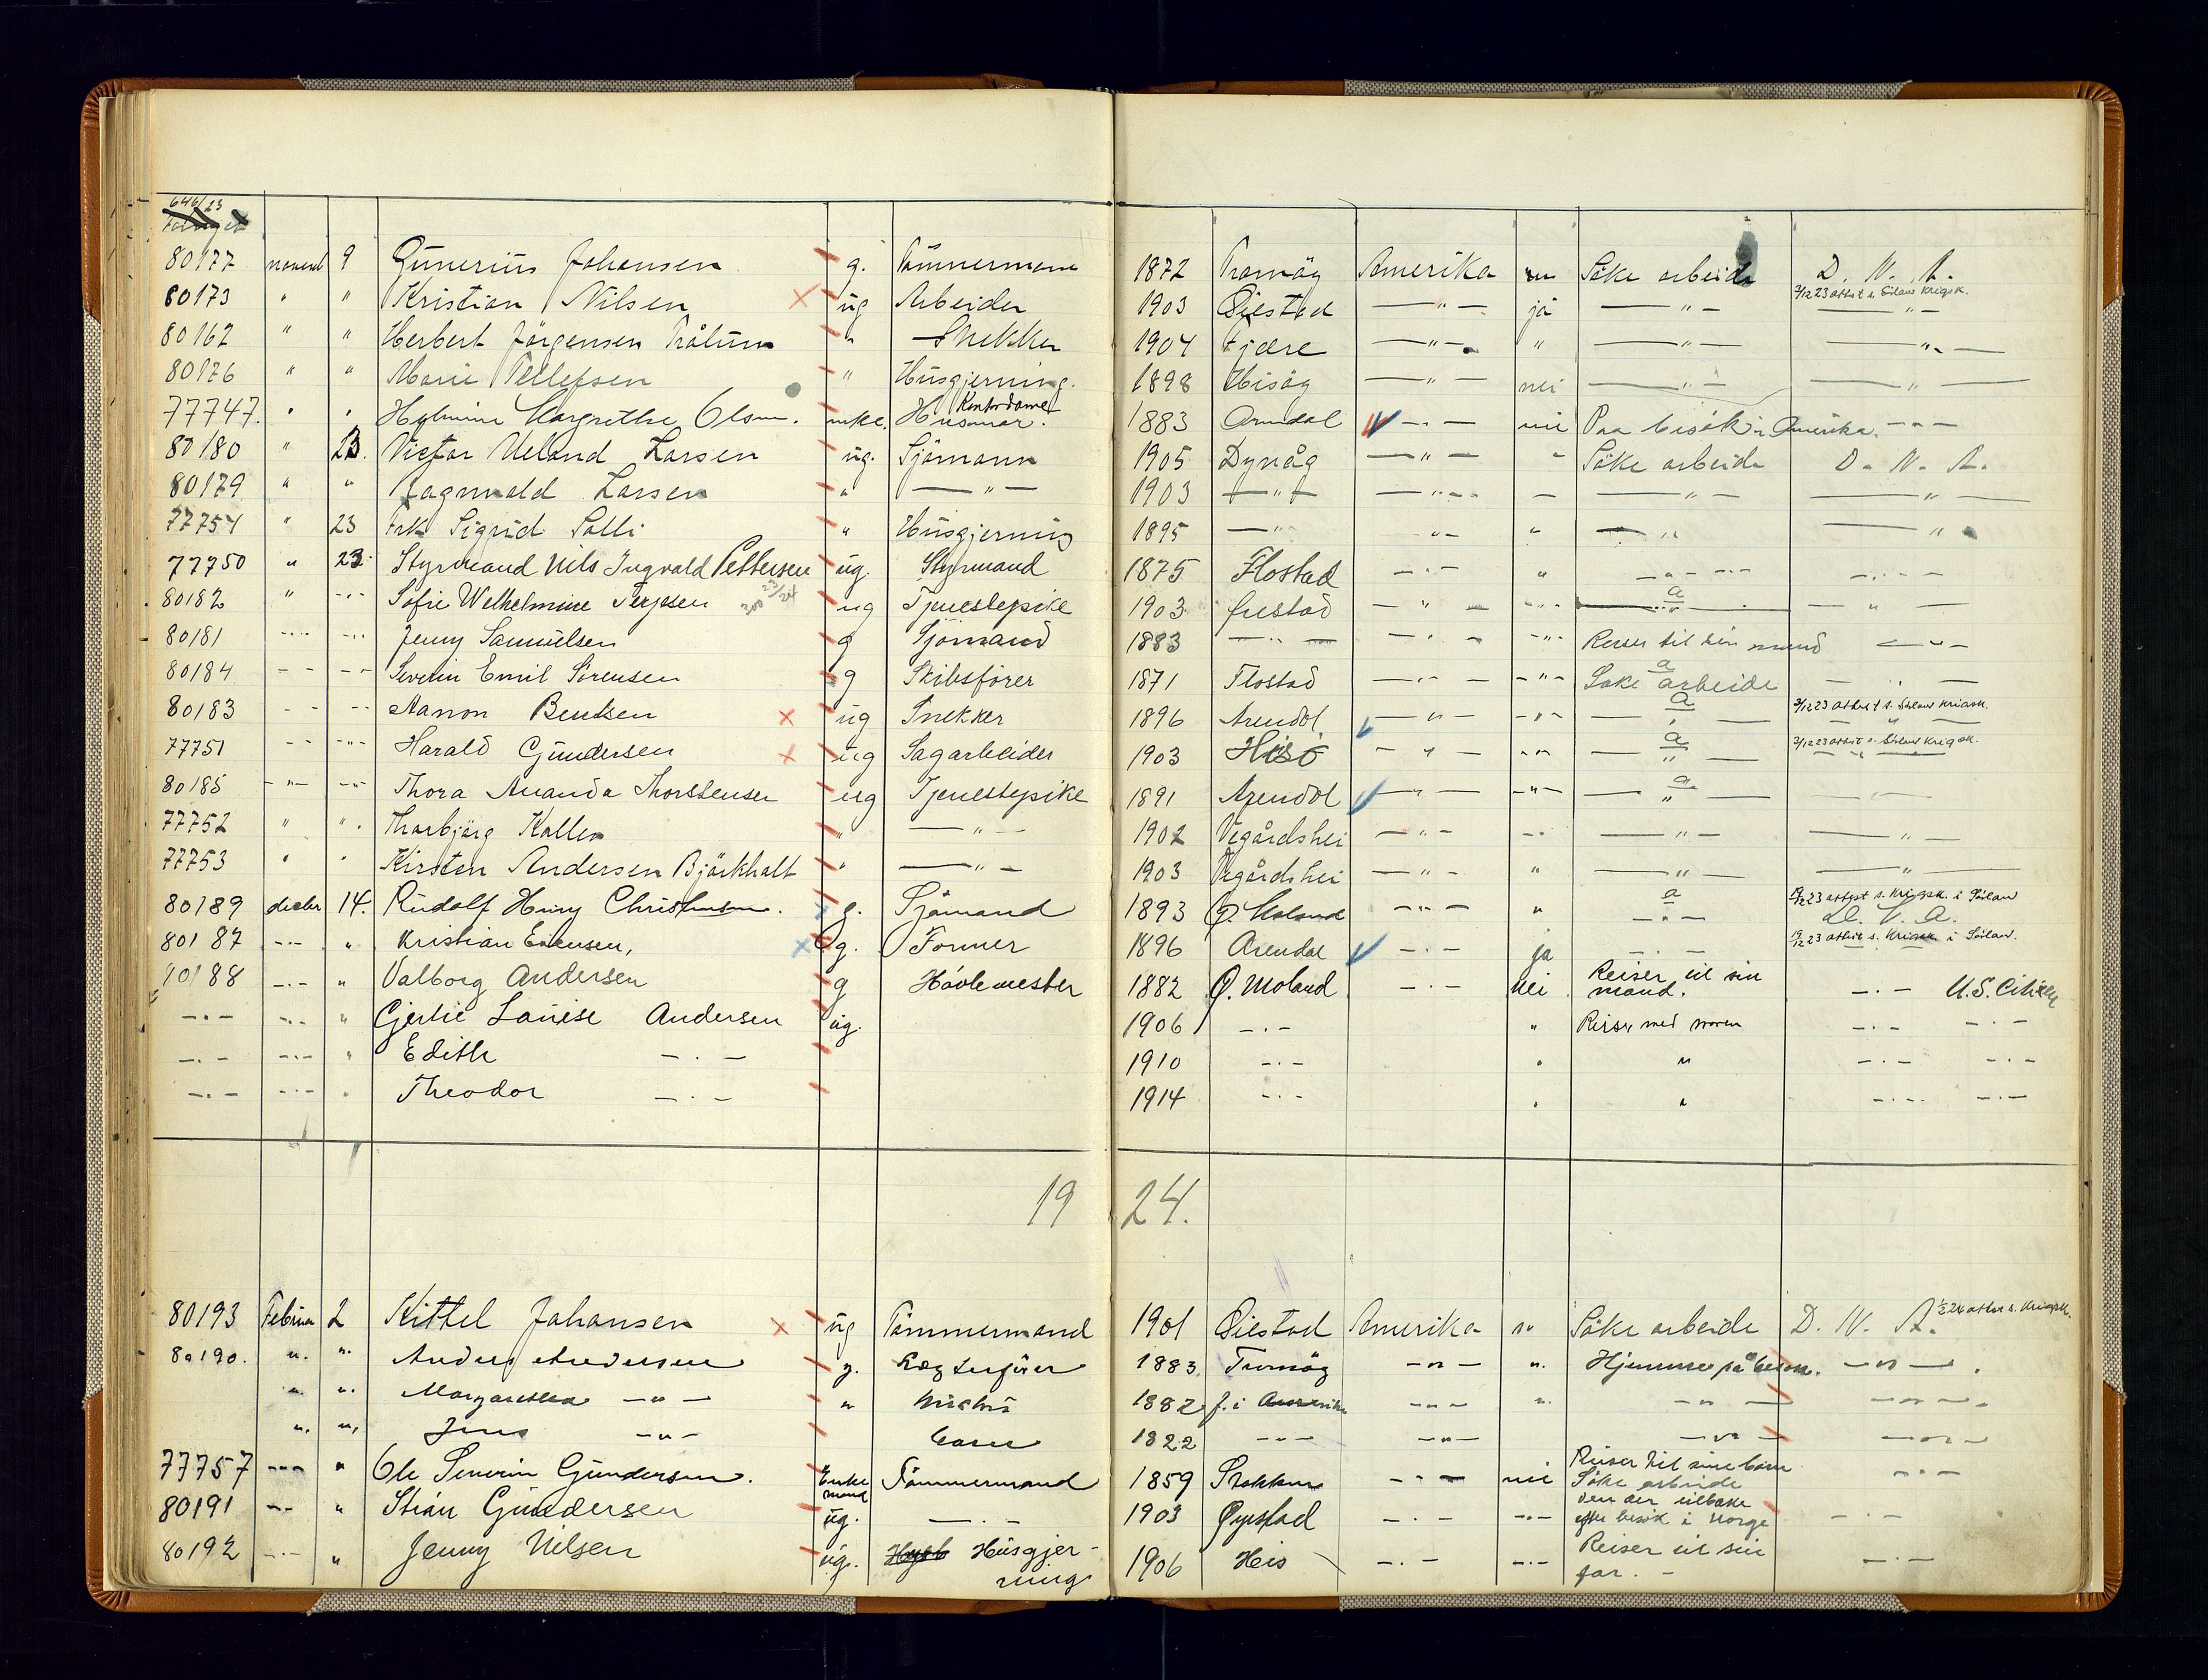 646/23
80177 novemb 9 Gunerius Johansen g. Tømmermann 1872 Tromöy Amerika nei Söke arbeide D. N. A.
80173 " " Kristian Nilsen × ug Arbeider 1903 Öiestad — " — ja — " — 3/12 23 attest s. Sörlans Krigsk. — " —
80162 " " Herbert Jörgensen Trålum " Snekker 1904 Fjære — " — " — " — — " —
80176 " " Marie Tellefsen " Husgjerning. 1898 Hisöy — " — nei — " — — " —
77747. " " Hylmine Margrethe Olsen. enke. Husmor. Kontordame 1883 Arendal — " — nei Paa besök i Amerika. — " —
80180 " 13. Victor Ueland Larsen ug. Sjömann 1905 Dypåg — " — " Söke arbeide D. N. A.
80179 " " Ragnvald Larsen " — " — 1903 — " — — " — — — " — — " —
77754 " 23 Frk. Sigrid Solli " Husgjerning 1895 — " — — " — " — " — — " —
77750 " 23. Styrmand Nils Ingvald Pettersen ug. Styrmand 1875 Flostad — " — " — " — — " —
80182 " — " — Sofie Welhelmine Terjesen 300 23/24 ug Tjenestepike 1903 — " — — " — a — " — — " —
80181 — " — — " — Jenny Samuelsen g Sjömand 1883 — " — — " — — " — Reiser til sin mand — " —
80184 — " — — " — Severin Emil Sörensen g Skibsförer 1871 Flostad — " — — " — Söke arbeide — " —
80183 — " — — " — Aanon Bentsen × ug Snekker 1896 Arendal — " — — " — a — " — 3/12 23 attest s. Sörlans Krigsk. — " —
77751 — " — — " — Harald Gundersen × ug Sagarbeider 1903 Hisö — " — — " — a — " — 3/12 23 attest s. Sörlans Krigsk. — " —
80185 — " — — " — Thora Ananda Thorstensen ug Tjenestepike 1891 Arendal — " — — " — a — " — — " —
77752 " " Thorbjörg Kollen " — " — 1902 Vegårdshei — " — — " — — " — — " —
77753 " " Kirsten Andersen Björkholt " — " — 1903 Vegårdshei — " — " — " — — " —
80189 decbr 14. Rudolf Henry Christensen. × g. Sjömand 1893 Ö. Moland — " — " a — " — 19/12 23 attest s. Krigsk. i Sörlan D. N. A.
80187 — " — " Kristian Evensen, × g. Former 1896 Arendal — " — ja — " — 19/12 23 attest s. Krigsk. i Sörlan. — " —
80188 — " — " Valborg Andersen g Hövlemester 1882 Ö. Moland — " — Nei Reiser til sin mand. — " — U.S. Citizen
— " — — " — " Gjertie Louise Andersen ug. 1906 — " — " Reiser med moren — " — — " —
— " — — " — " Edith — " — 1910 — " — " " — " — — " —
— " — — " — " Theodor — " — 1914 — " — " " — " — — " —
19 24.
80193 Februar 2 Kittel Johansen × ug Tömmermand 1901 Öiestad Amerika nei Söke arbeide D. N. A. 1/2 24 attest s. Krigsk.
80190. " " Anders Andersen g. 1883 Tromöy — " — " Hjemme på besök. — " —
" " Margarethe — " — " 1882 f. i Amerika — " — " — " — — " —
" " Jens — " — barn 1922 — " — — " — — " — — " —
77757 — " — " Ole Severin Gundersen. Enkemand Tömmermand 1859 Stokken — " — nei Reiser til sine barn — " —
80191 — " — " Stian Gundersen ug. — " — 1903 Öyestad — " — — " — Söke arbeide den der tilbake efter besök i Norge — " —
80192 — " — " Jenny Nilsen ug. Husgjerning 1906 His — " — — " — Reiser til sin far. — — " —